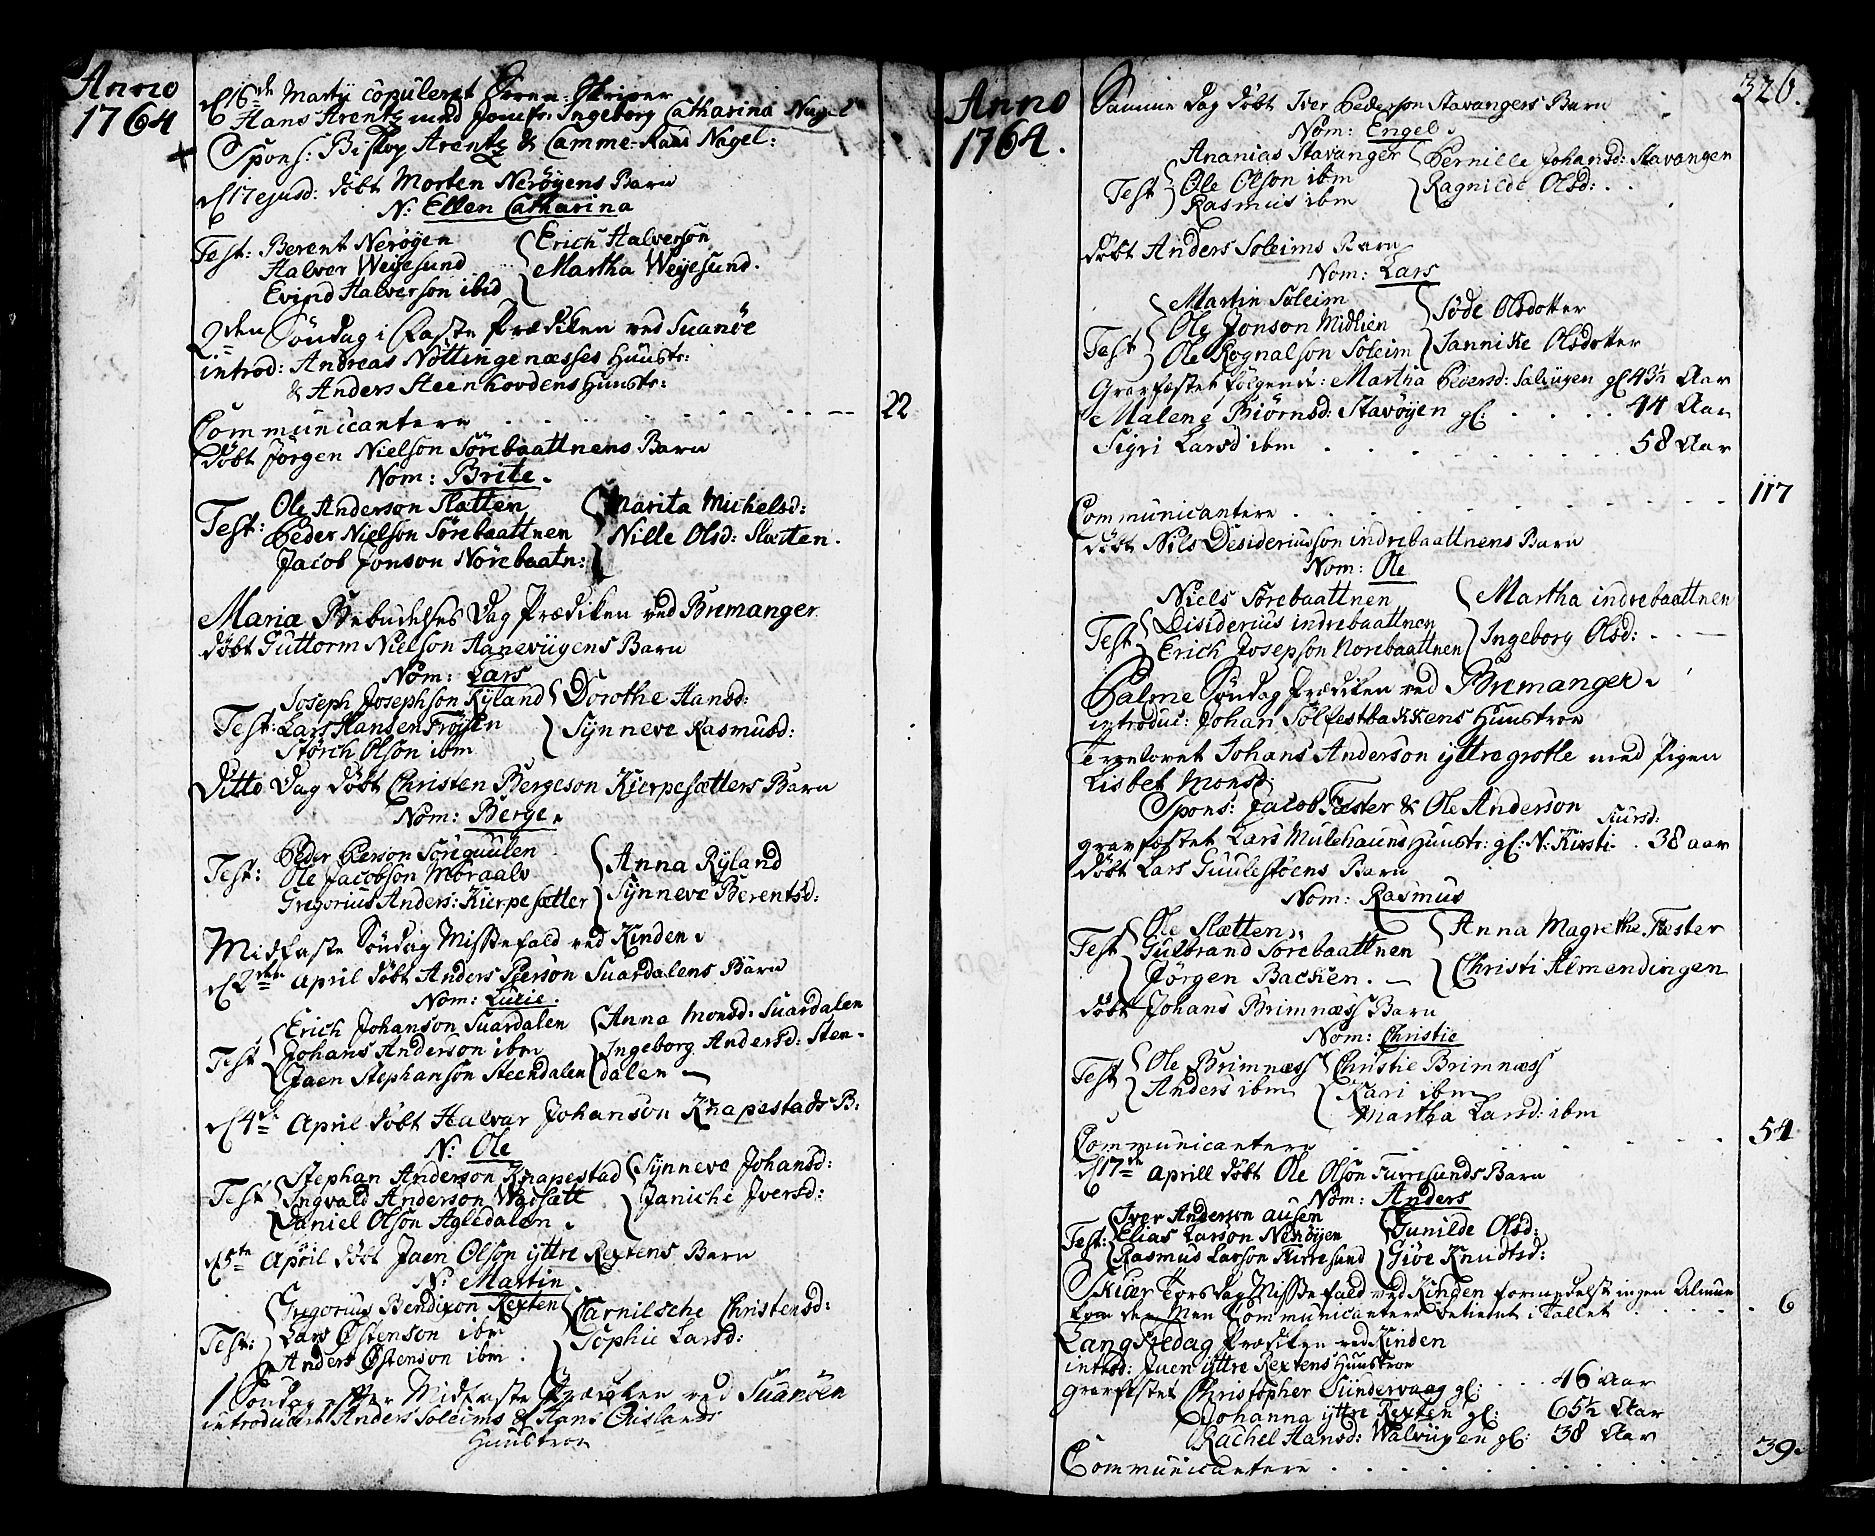 Anno
1764
d 16de Martij copuleret Soren-Skriver
Hans Arentz med Jomfr: Ingeborg Catharina Nagel
Spons: Biskop Arentz & Camme-Raad Nagel:
d 17 ejusd: döbt Morten Neröyens Barn
N: Ellen Catharina
Test: Berent Neröyen
Halver Weyesund
Evind Halverson ibid
Erich Halverson
Martha Weyesund.
2den Söndag i Faste Prædiken ved Suanöe
introd: Andreas Nöttingenæsses Huustr:
& Anders Steenhovdens Huustr:
Communicantere . . . 22
döbt Jörgen Nielson Sörebaattnens Barn
Nom: Brite.
Test: Ole Anderson Slatten
Peder Nielson Sörebaattnen
Jacob Jonson Nörebaatn:
Marita Michelsd:
Nille Olsd: Slætten.
Mariæ Bebudelses Dag Prædiken ved Bremanger
döbt Guttorm Nielson Hanevügens Barn
Nom: Lars
Test: Joseph Josephson Ryland
Lars Hansen Fröyen
Störch Olson ibm
Dorothe Hansd:
Synneve Rasmusd:
Ditto Dag döbt Christen Bergeson Kierpesætters Barn
Nom: Berge.
Test: Peder Person Söreguulen
Ole Jacobson Moraalv
Gregorius Anders: Kierpesætter
Anna Ryland
Synneve Berentsd:
Midfaste Söndag Missefald ved Kinden.
d 2den April döbt Anders Pierson Suardalens Barn
Nom: Lucie.
Test Erich Johanson Suardalen
Johans Anderson ibm
Jaen Stephanson Steendalen
Anna Monsd: Suardalen
Ingeborg Andersd: Steen-
dalen
d 4de April döbt Halvar Johanson Knapestads B:
N: Ole
Test Stephan Anderson Knapestad
Ingvald Anderson Wassætt
Daniel Olson Agledalen.
Synneve Johansd:
Janiche Iversd:
d 5te April döbt Jaen Olson yttre Rextens Barn
N: Martin
Test: Gregorius Bendixon Rexten
Lars Østenson ibm
Anders Østenson ibm.
Carnilsche Christensd:
Sophie Larsd:
1 Söndag effter Midfaste Prædiken ved Suanöen
introduceret Anders Soleims & Hans Qvislands
Huustroe
Anno
1764.
326.
Samme Dag döbt Iver Pederson Stavangers Barn
Nom: Engel.
Test Ananias Stavanger
Ole Olson ibm
Rasmus ibm
Pernille Johansd: Stavangen
Ragnilde Olsd:
döbt Anders Soleims Barn
Nom: Lars
Test Martin Soleim
Ole Jonson Midlien
Ole Rognalson Soleim
Söde Olsdotter
Jannike Olsdotter
Gravfæstet fölgende: Martha Pedersd: Salvügen gl 43½ Aar
Malene Biörnsd: Stavöyen gl: . . . 44 Aar
Sigri Larsd ibm . . . 58 Aar
Communicantere . . . 117
döbt Nils Desideriusson indrebaattnens Barn
Nom: Ole
Test Niels Sörebaattnen
Disiderius indrebaattnen
Erich Josepson Norebaattnen
Martha indrebaattnen
Ingeborg Olsd:
Palme Söndag Prædiken ved Bremanger.
introduc: Johan Solfestbakkens Huustroe
Trolovet Johans Anderson yttre grotle med Pigen
Lisbet Monsd:
Spons: Jacob Fester & Ole Anderson
gravfæstet Lars Mulehauns Huustr: gl: N: Kirsti Siursd: 38 aar
döbt Lars Guulestöens Barn
Nom: Rasmus
Test Ole Slætten
Gulbrand Sorebaattnen
Jörgen Backen.
Anna Magrethe Fester
Christi Almendingen
döbt Johans Brimnæss Barn
Nom: Christie
Test Ole Brimnæss
Anders ibm
Christie Brimnæss
Kari ibm
Martha Larsd: ibm
Communicantere . . . 54
d 17de Aprill döbt Ole Olson Furresunds Barn
Nom: Anders
Test: Iver Anderson ausen
Elias Larson Neröyen
Rasmus Larson Furresund
Gunilde Olsd:
Giöe Knudtsd:
Skiær Torsdag Missefald ved Kinden formedelst ingen Almue
kom der Men Communicantere betient i Tallet . . . 6
Langfredag Prædiken ved Kinden
introd: Jaen yttre Rextens Huustroe
gravfæstet Christopher Sündervaag gl: . . 46 Aar
Johanna yttre Rexten gl: 65½ Aar
Rachel Hansd: Walvügen gl: 38 Aar
Communicantere . . . 39.